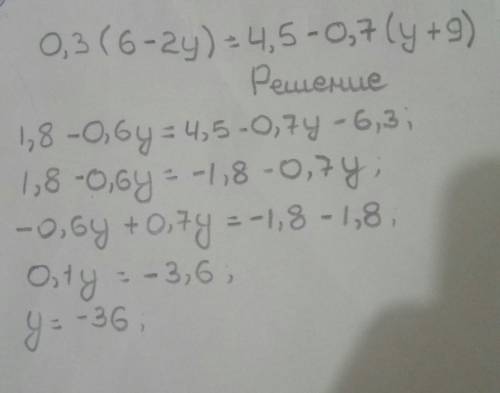 0,3(6-2y)=4,5-0,7(y+9)
Решение
1,8-0,6y=4,5-0,7y-6,3;
1,8-0,6y=-1,8-0,7y;
-0,6y+0,7y=-1,8-1,8;
0,1y=-3,6;
y=-36;